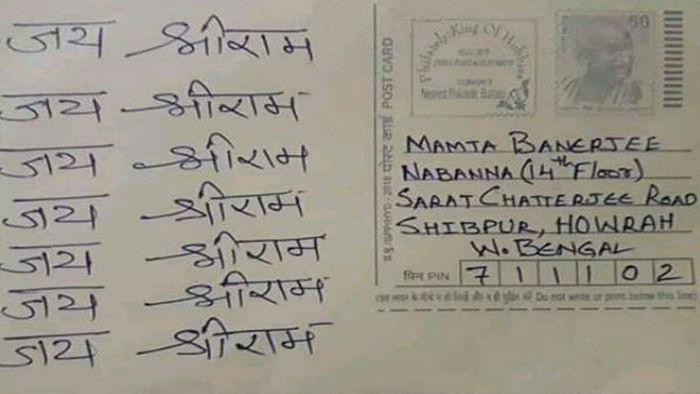 जय श्रीराम
जय श्रीराम
जय श्रीराम
जय श्रीराम
जय श्रीराम
जय श्रीराम
जय श्रीराम
Philately King Of Hobbies
Nearest Philatelic Bureau
50
पोस्ट कार्ड POST CARD
MAMTA BANERJEE
NABANNA (14th Floor)
SARAT CHATTERJEE ROAD
SHIBPUR, HOWRAH
W. BENGAL
पिन PIN 711102
Do not write or print below this line